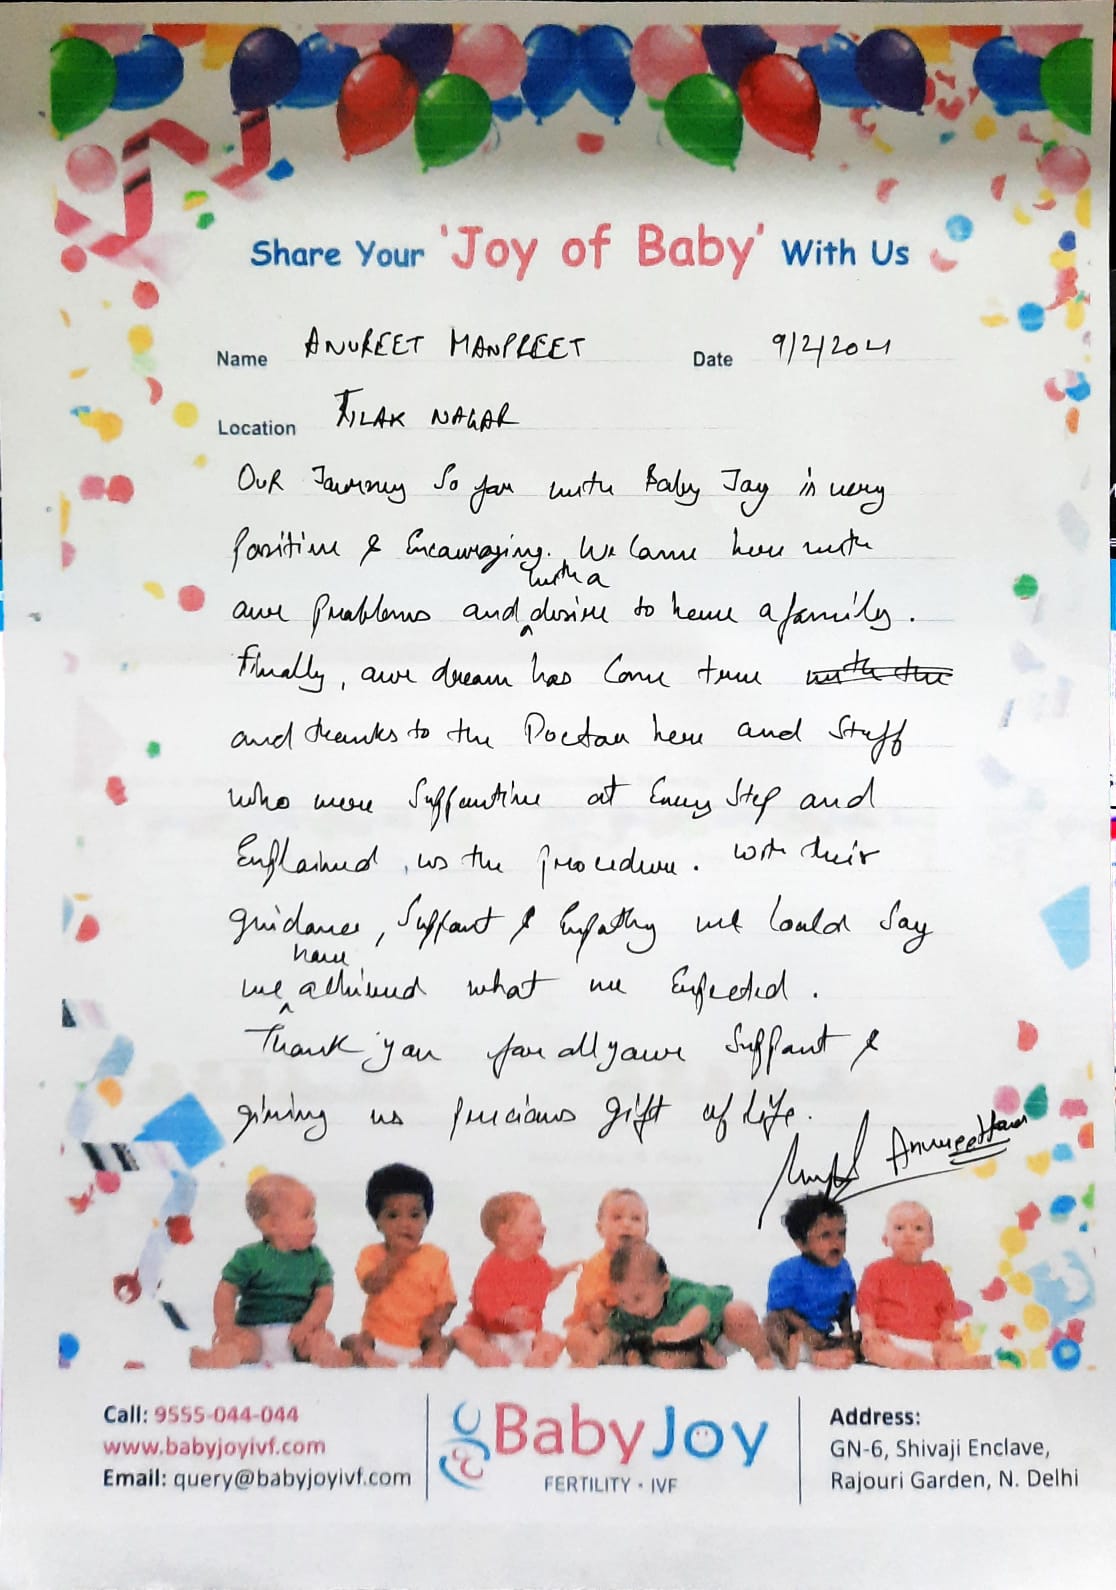 Share Your 'Joy of Baby' With Us
Name ANUREET MANPREET Date 9/2/2021
Location TILAK NAGAR
Our Journey So far with Baby Joy is very
Positive & Encouraging. We Came here with
our Problems and with a desire to have a family.
Finally, our dream has Come true with the
and thanks to the Doctor here and Staff
who were Supportive at Every Step and
Explained us the procedure. With their
guidance, Support & Empathy we Could Say
we have achieved what we Expected.
Thank you for all your Support &
giving us precious gift of life.
Anureet Kaur
Call: 9555-044-044
www.babyjoyivf.com
Email: query@babyjoyivf.com
Baby Joy
FERTILITY · IVF
Address:
GN-6, Shivaji Enclave,
Rajouri Garden, N. Delhi